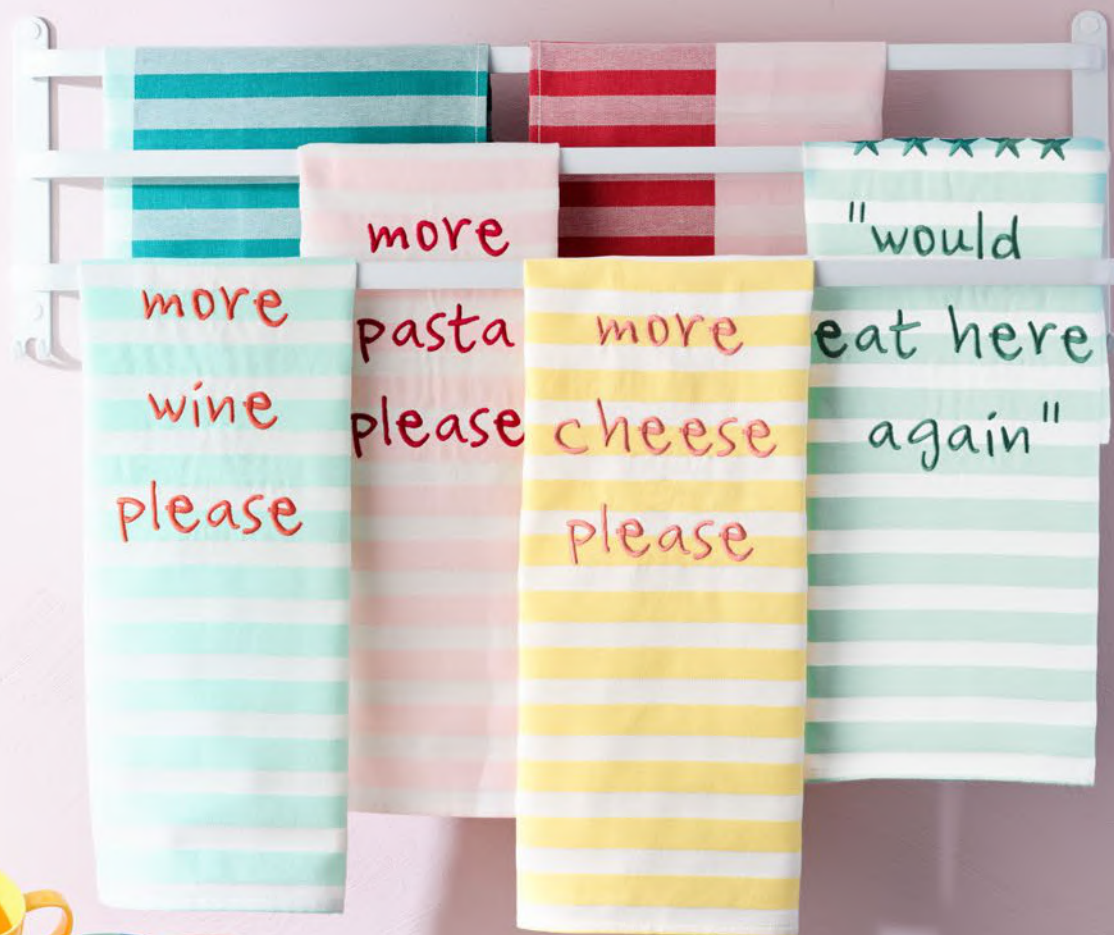 more
wine
please
more
pasta
please
more
cheese
please
"would
eat here
again"